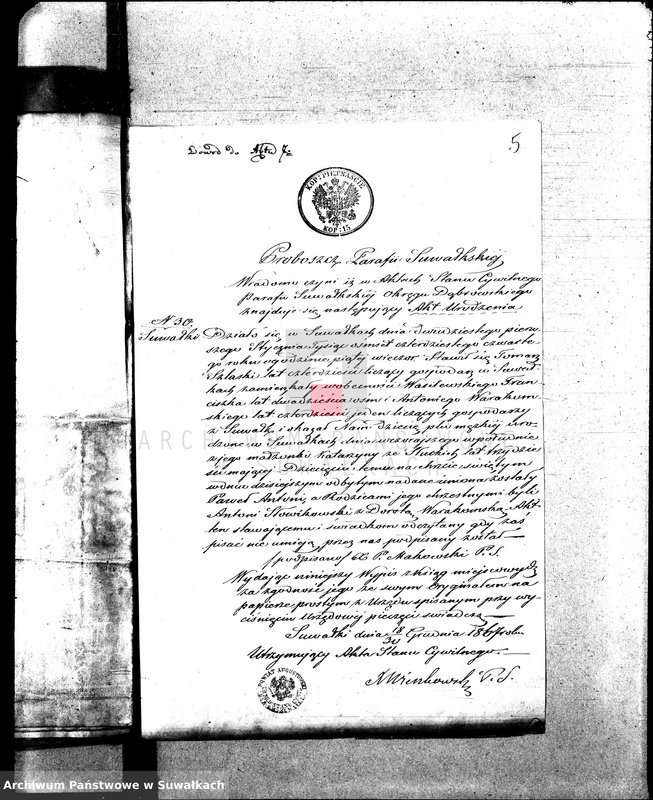 5
Dowód do Aktu 7
KOP: PIĘTNAŚCIE
KOP: 15
Proboszcz Parafii Suwałkskiéj
Wiadomo czyni iż w Aktach Stanu Cywilnego
Parafii Suwałkskiéj Okręgu Dąbrowskiego
znajduje się następujący Akt Urodzenia
N 30.
Suwałki
Działo się w Suwałkach dnia dwudziestego pierw
szego Stycznia Tysiąc ośmset czterdziestego czwarte
go roku o godzinie piątej wieczor. Stawił się Tomasz
Szlaski lat czterdzieści liczący gospodarz w Suwał
kach zamieszkały w obecności Wasilewskiego Fran
ciszka lat dwadzieścia ośm i Antoniego Warakom
skiego lat czterdzieści jeden liczących gospodarzy
z Suwałk i okazał Nam dziecię płci męzkiej uro
dzone w Suwałkach dnia wczorajszego w południe
z jego małżonki Katarzyny ze Słuckich lat trzydzie
ści mającej Dziecięciu temu na chrzcie świętym
w dniu dzisiejszym odbytym nadane imiona zostały
Paweł Antoni, a Rodzicami jego chrzestnymi byli
Antoni Nowikowski z Dorotą Warakomską. Akt
ten stawającemu i świadkom odczytany gdy zaś
pisać nie umieją przez nas podpisany został
(podpisany) X. P. Makowski P. S.
Wydając niniejszy Wypis z ksiąg miejscowych
za zgodność jego ze swym Oryginałem na
papierze prostym z Urzędu spisanym przy wy
ciśnięciu Urzędowej pieczęci świadczę
Suwałki dnia 18/30 Grudnia 1867 roku
Utrzymujący Akta Stanu Cywilnego.
P. S.
ARCHIWUM
Archiwum Państwowe w Suwałkach